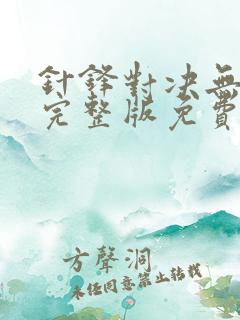 針鋒對决無
完整版免費
方聲洞
未经同意禁止转载